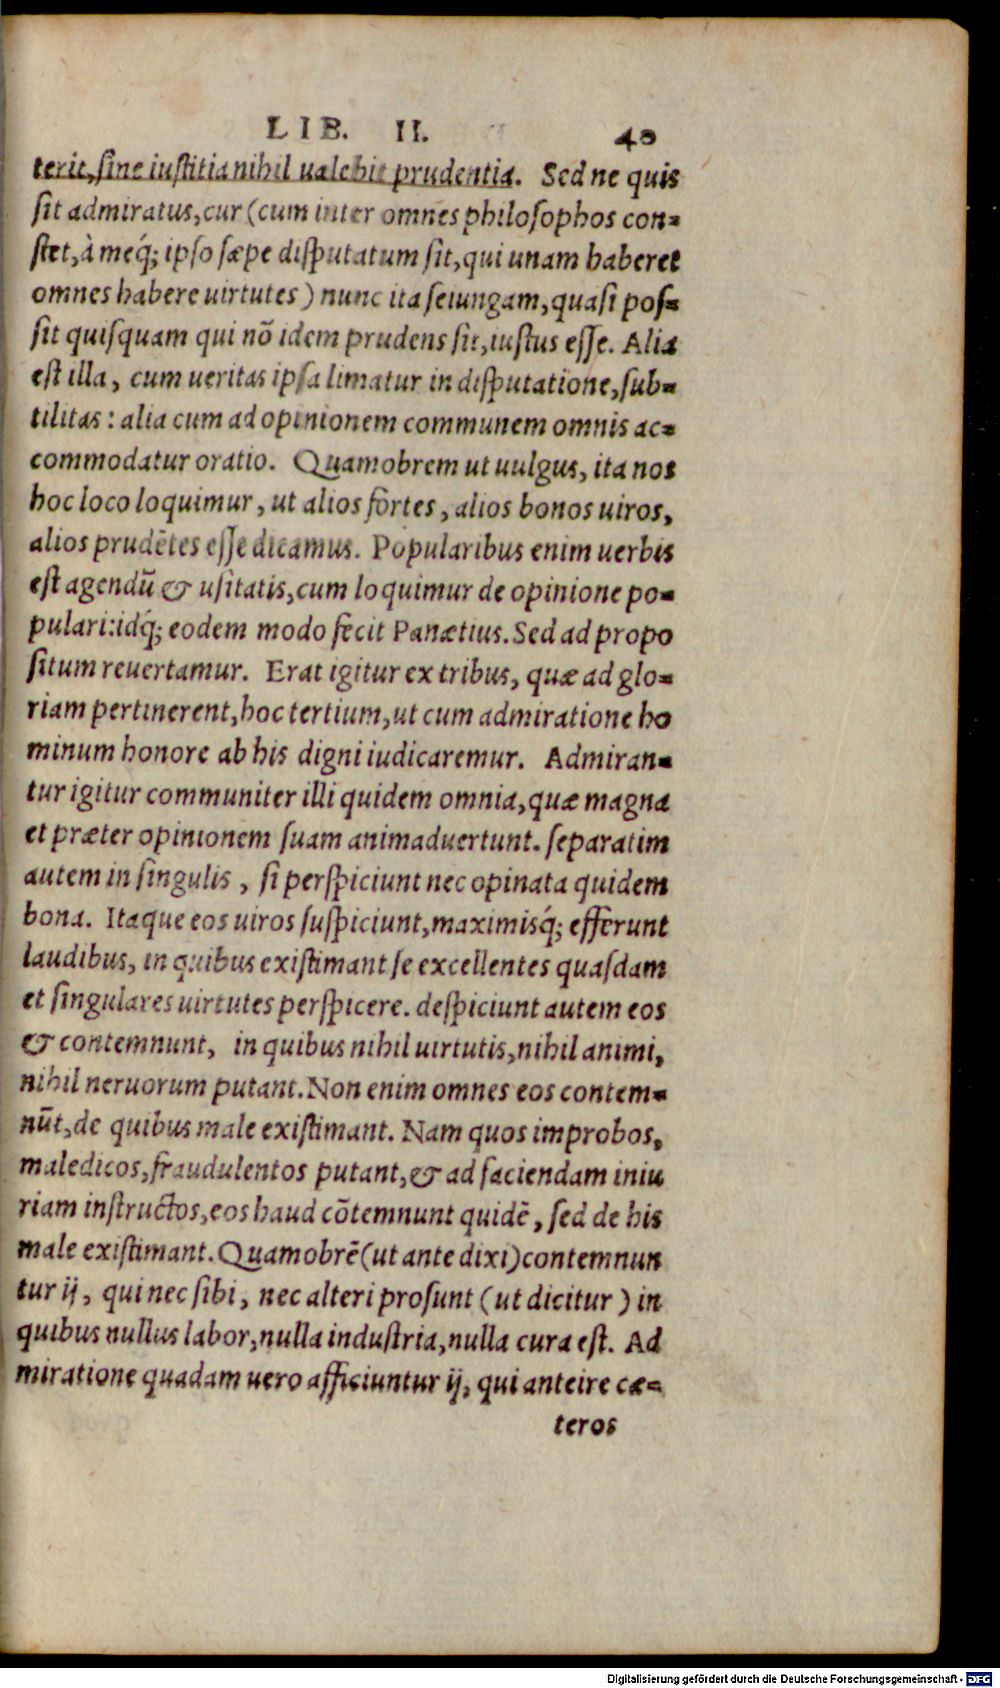 LIB. II. 40
terit, sine iustitia nihil ualebit prudentia. Sed ne quis
sit admiratus, cur (cum inter omnes philosophos con-
stet, à meq́; ipso sæpe disputatum sit, qui unam haberet
omnes habere uirtutes) nunc ita seiungam, quasi pos-
sit quisquam qui nõ idem prudens sit, iustus esse. Alia
est illa, cum ueritas ipsa limatur in disputatione, sub-
tilitas: alia cum ad opinionem communem omnis ac-
commodatur oratio. Quamobrem ut uulgus, ita nos
hoc loco loquimur, ut alios fortes, alios bonos uiros,
alios prudẽtes esse dicamus. Popularibus enim uerbis
est agendũ & usitatis, cum loquimur de opinione po-
pulari: idq́; eodem modo fecit Panætius. Sed ad propo
situm reuertamur. Erat igitur ex tribus, quæ ad glo-
riam pertinerent, hoc tertium, ut cum admiratione ho
minum honore ab his digni iudicaremur. Admiran-
tur igitur communiter illi quidem omnia, quæ magna
et præter opinionem suam animaduertunt. separatim
autem in singulis, si perspiciunt nec opinata quidem
bona. Itaque eos uiros suspiciunt, maximisq́; efferunt
laudibus, in quibus existimant se excellentes quasdam
et singulares uirtutes perspicere. despiciunt autem eos
& contemnunt, in quibus nihil uirtutis, nihil animi,
nihil neruorum putant. Non enim omnes eos contem-
nũt, de quibus male existimant. Nam quos improbos,
maledicos, fraudulentos putant, & ad faciendam iniu
riam instructos, eos haud cõtemnunt quidẽ, sed de his
male existimant. Quamobrẽ (ut ante dixi) contemnun
tur ij, qui nec sibi, nec alteri prosunt (ut dicitur) in
quibus nullus labor, nulla industria, nulla cura est. Ad
miratione quadam uero afficiuntur ij, qui anteire cæ-
teros
Digitalisierung gefördert durch die Deutsche Forschungsgemeinschaft - DFG